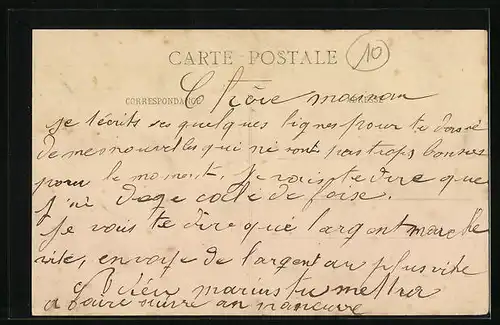 CARTE POSTALE
10
CORRESPONDANCE
Chère maman
je t'écrits ses quelques lignes pour te donné
de mes nouvelles qui ne sont pas trops bonnes
pour le moment. je vais te dire que
j'ai de
je vais te dire que l'argent marche
vite, envoye de l'argent au plus vite
marius tu mettra
a faire suivre au maneuvre